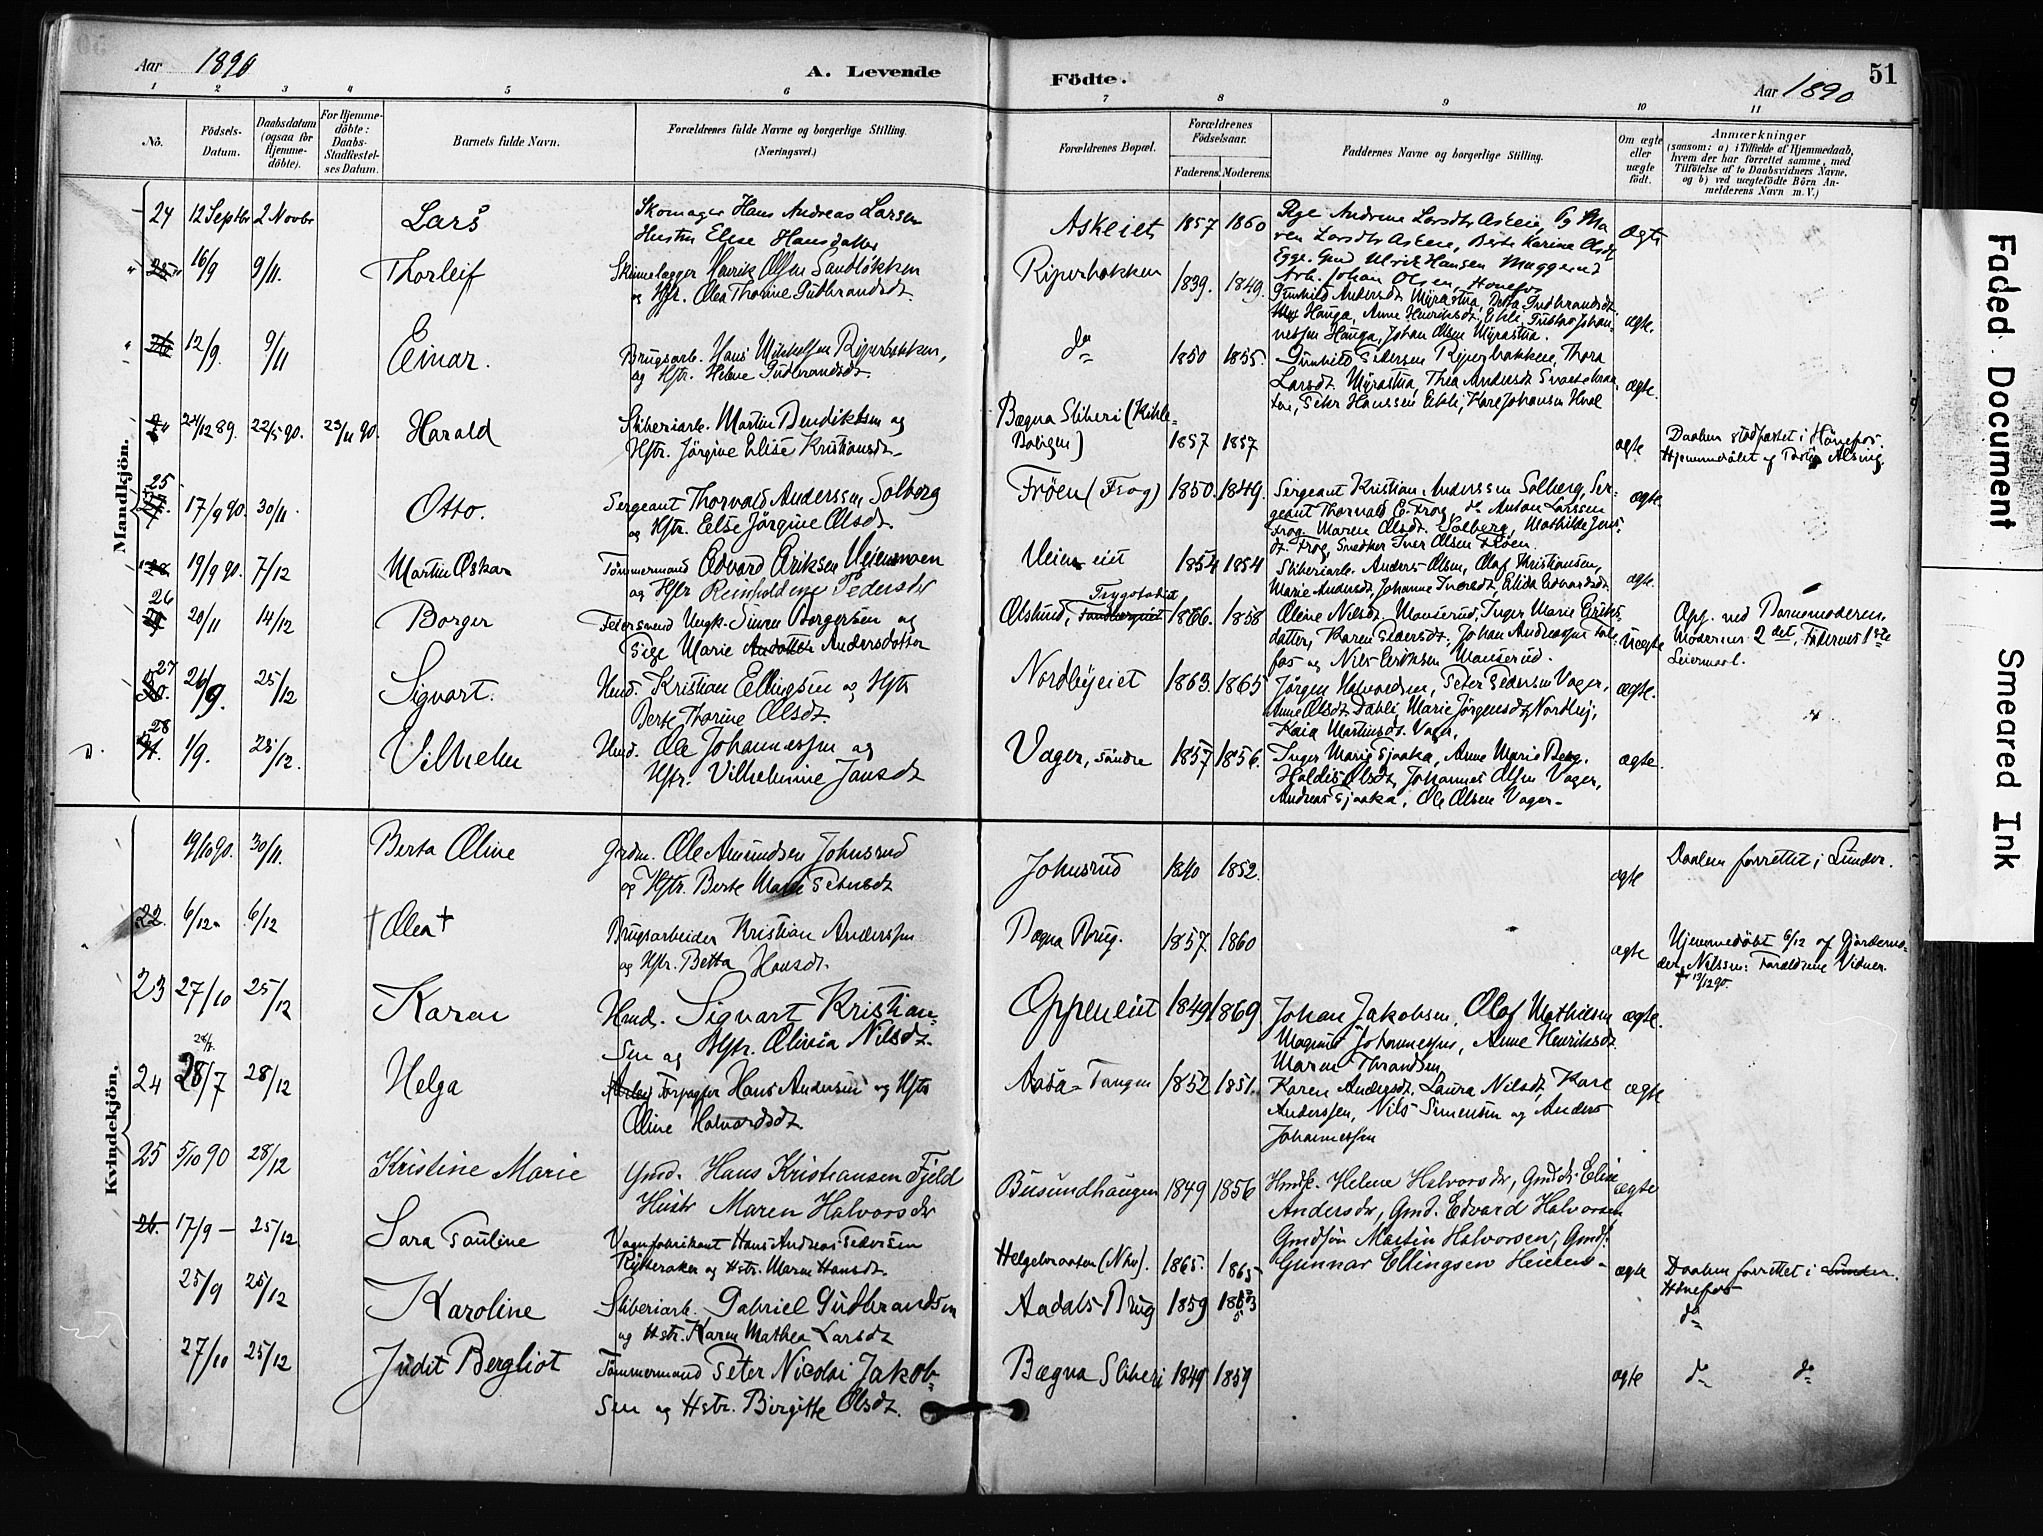 Aar 1890
A. Levende
Födte.
Aar 1890
51
1 2 3 4 5 6 7 8 9 10 11
No.
Födsels-Datum.
Daabsdatum (ogsaa for Hjemme-döbte).
For Hjemme-döbte: Daabs-Stadfæstel-ses Datum.
Barnets fulde Navn.
Forældrenes fulde Navne og borgerlige Stilling.
(Næringsvei.)
Forældrenes Bopæl.
Forældrenes Födselsaar.
Faderens. Moderens.
Faddernes Navne og borgerlige Stilling.
Om ægte eller uægte födt.
Anmærkninger
(saasom: a) i Tilfælde af Hjemmedaab,
hvem der har forrettet samme, med
Tilföielse af to Daabsvidners Navne,
og b) ved uægtefödte Börn An-
melderens Navn m. V.)
Mandkjön.
24 12 Septbr 2 Novbr Lars
Skomager Hans Andreas Larsen
Hustru Elise Hansdatter
Askeiet 1857 1860
Pige Andrine Larsdtr Askeie, Pg Ma
ren Larsdtr Askeie, Berte Karine Olsdtr
Egge. Gmd Ulrik Hansen Muggerud
Arb. Johan Olsen, Hönefos
ægte
16/9 9/11. Thorleif
Skinnelægger Henrik Olsen Sandbökken
og Hstr. Olea Thorine Gudbrandsdt.
Riperbakken 1839. 1849.
Gunhild Andersdt Myrastua, Berta Gudbrandsdt
Hauga, Anne Henriksdt. Ekli, Gustav Johan-
nessen Hauga, Johan Olsen Myrastua.
ægte.
12/9. 9/11 Einar.
Brugsarb. Hans Mikkelsen Riperbakken,
og Hstr. Helene Gudbrandsdt.
do 1850 1855.
Gunhild Pedersen Riperbakken, Thora
Larsdt Myrastua, Thea Andersdt
Peter Hanssen Ekli, Karl Johansen Hval
ægte.
24/12 89. 22/5 90. 23/11 90. Harald
Sliberiarb. Martin Bendiksen og
Hstr. Jörgine Elise Kristiansdt.
Bægna Sliberi (Kihle-
Boligen) 1857 1857
ægte
Daaben stadfæstet i Hönefos.
Hjemmedöbt af Alsing.
25 17/9 90. 30/11. Otto.
Sergeant Thorvald Anderssen Solberg
og Hstr. Else Jörgine Olsdt.
Fröen (Frog) 1850. 1849.
Sergeant Kristian Anderssen Solberg, Ser-
geant Thorvald E. Frog, do Anton Larssen
Frog, Maren Olsdt. Solberg, Mathilde Jens-
dt. Frog, Snedker Iver Olsen Fröen.
ægte
19/9 90. 7/12 Martin Oskar
Tömmermand Edvard Eriksen Veiensmoen
og Hstr Reinholdine Pedersdtr
Veien eiet 1854 1854
Sliberiarb. Anders Olsen, Olaf Kristiansen,
Marie Andersdt, Johanne Iversdt, Elida Edvardsdt.
ægte.
26 20/11 14/12 Borger
Simen Borgersen og
Pige Marie Andersdatter
Olslund, Trygstadeiet 1866. 1858
Oline Nilsdt. Mauserud, Inger Marie Eriks-
datter, Karen Pedersdt. Johan Andreassen
fos og Nils Eriksen Mauserud.
Uægte
Opg. ved Barnemoderen.
Moderens 2det, Faderens 1ste
Leiermaal.
27 26/9. 25/12 Sigvart.
Hmd. Kristian Ellingsen og Hstr
Berte Thorine Olsdt.
Nordbyeiet 1863. 1865
Jörgen Halvorsen, Peter Pedersen Vager,
Anne Olsdt. Dahli Marie Jörgensdt, Nordby,
Kaia Martinsdt. Vager.
ægte.
28 1/9. 25/12. Vilhelm
Hmd. Ole Johannessen og
Hstr. Vilhelmine Jansdt
Vager, söndre 1857 1856.
Inger Marie Tjaaka, Anne Marie Berg,
Haldis Olsdt, Johannes Olsen Vager,
Andreas Tjaaka, Ole Olsen Vager.
ægte.
Kvindekjön.
19/10 90. 30/11. Berta Oline
Grdm. Ole Amundsen Johnsrud
og Hstr. Berte Marie Petersdt
Johnsrud 1840 1852.
ægte
Daaben forrettet i Lunder.
22. 6/12. 6/12 † Olea †
Brugsarbeider Kristian Anderssen
og Hstr. Betta Hansdt.
Bægna Brug. 1857. 1860
ægte
Hjemmedöbt 6/12 af Gjordemo-
der Nilssen: Forældrene Vidner.
† 12/12 90.
23 27/10 25/12 Karen
Hmd. Sigvart Kristian-
sen og Hstr. Olivia Nilsdt.
Oppeneiet 1849 1869
Johan Jakobsen, Olaf Mathisen
Magnus Johannessen, Anne Henriksdt.
Maren Thrandsen
ægte.
24 28/7 28/7 28/12 Helga
Forpagter Hans Andersen og Hstr
Oline Halvorsdt
Aasa-Tangen 1852 1851.
Karen Andersdt, Laura Nilsdt, Karl
Anderssen, Nils Simensen og Anders
Johannessen
ægte
25 5/10 90 28/12 Kristine Marie
Gmd. Hans Kristiansen Fjeld
Hustr Maren Halvorsdtr
Busundhaugen 1849 1856
Hmdsk. Helene Halvorsdtr, Gmddtr Elise
Andersdtr, Gmd. Edvard Halvorsen
Gmdsön Martin Halvorsen, Gmds.
Gunnar Ellingsen
ægte
26. 17/9 – 25/12 Sara Pauline
Vognfabrikant Hans Andreas Pedersen
Rytteraker og Hstr. Maren Hansdt.
Helgebraaten (Nho). 1865. 1865
ægte
Daaben forrettet i Lunder.
Hönefos
25/9 25/12 Karoline
Sliberiarb. Gabriel Gudbrandsen
og Hstr. Karen Mathea Larsdt
Aadals Brug 1859 1863
do
27/10 25/12 Judit Bergliot
Tömmermand Peter Nicolai Jakob-
sen og Hstr. Birgitte Olsdt.
Bægna Sliberi 1849 1859
ægte
do do
Faded Document
Smeared Ink